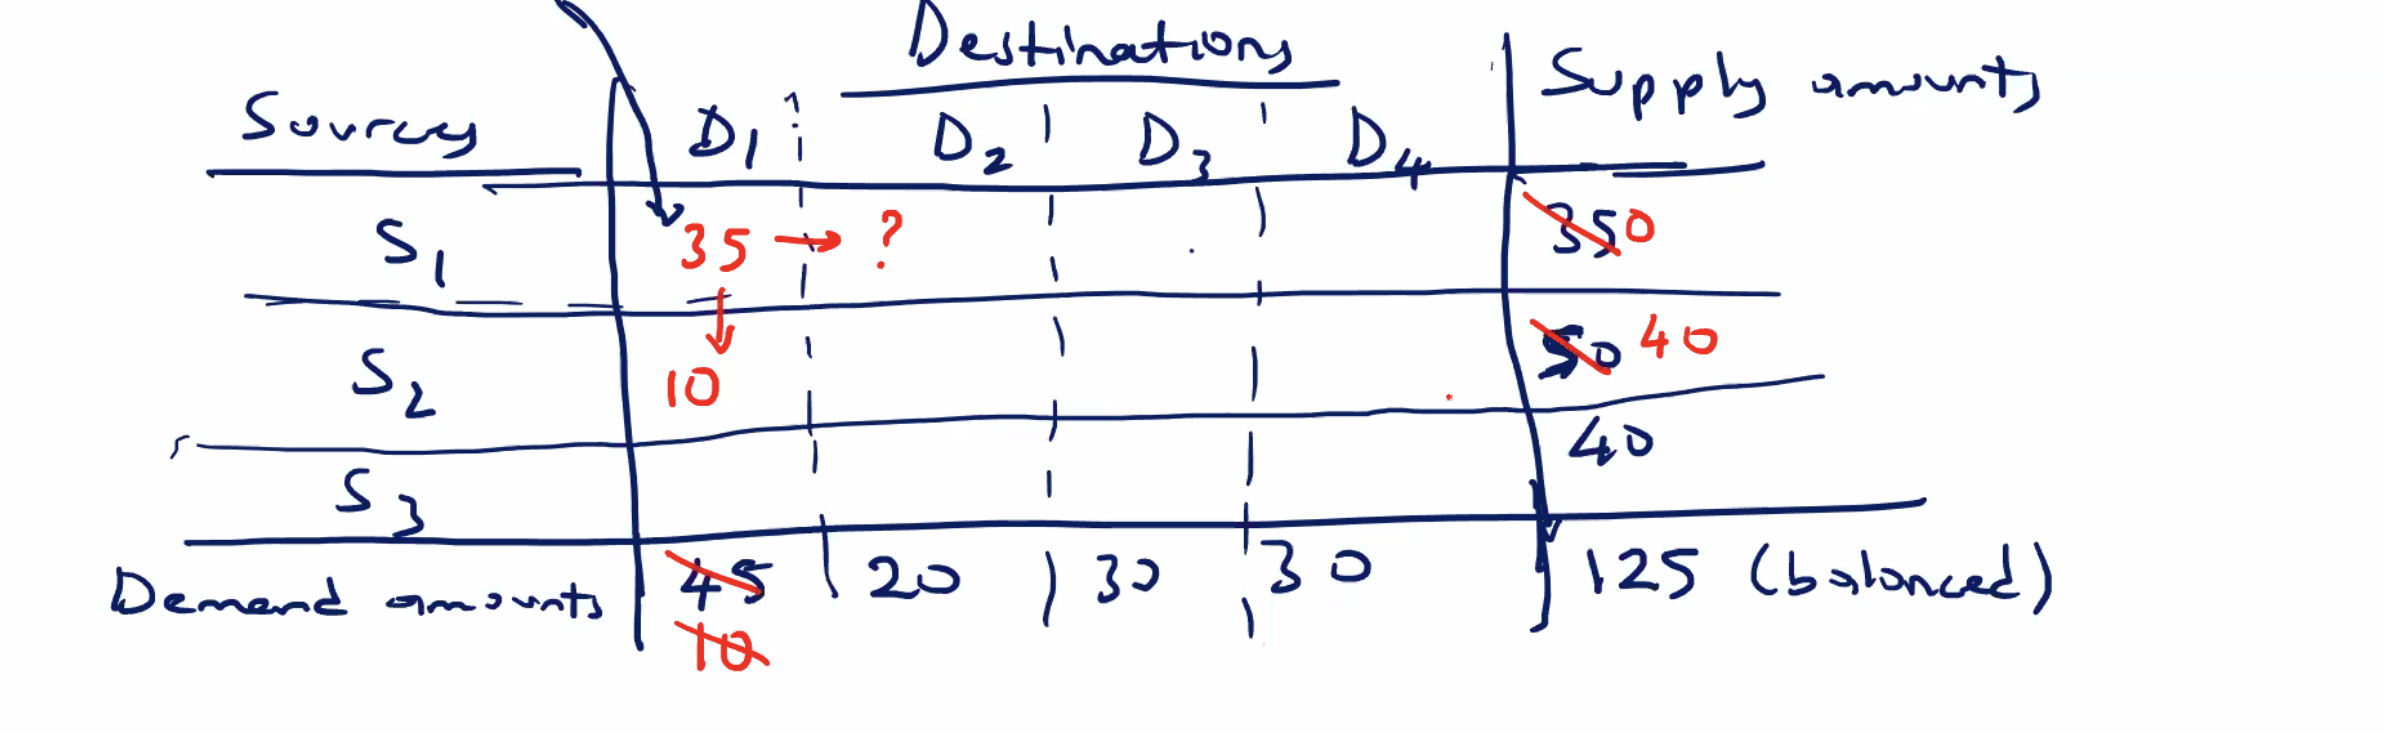 Destinations
Sources D1 D2 D3 D4 Supply amounts
S1 35 → ? 35 0
S2 10 50 40
S3 40
Demand amounts 45 20 30 30 125 (balanced)
10